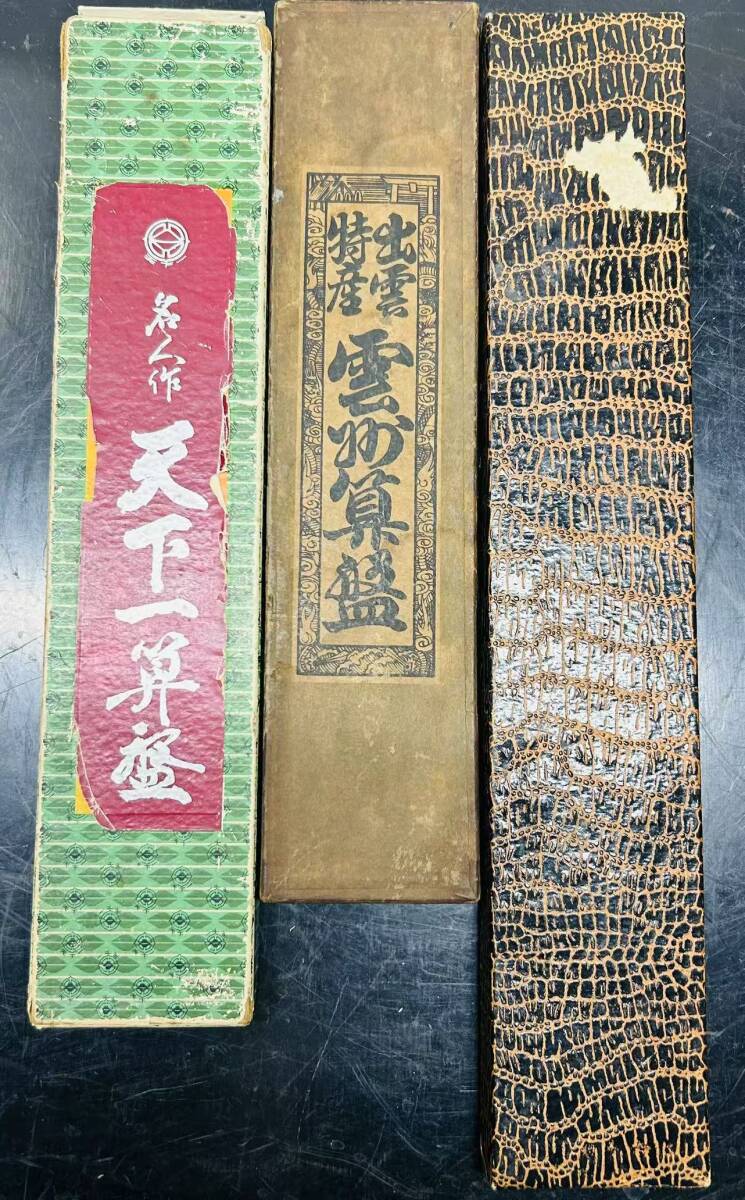 名人作
天下一算盤
出雲
特産
雲州算盤